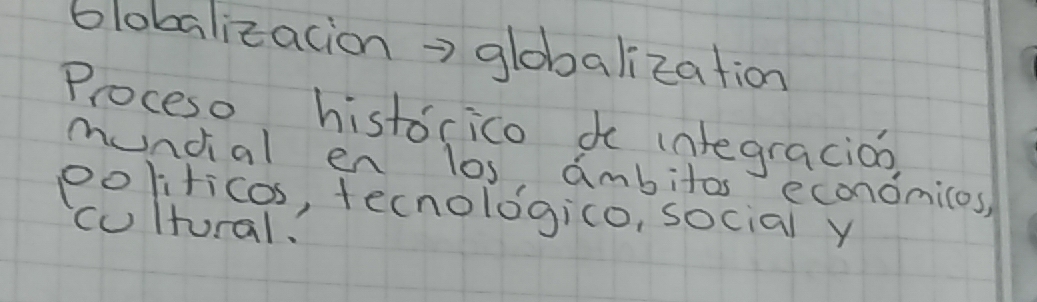 Globalizacion → globalization
Proceso histórico de integración
mundial en los ámbitos económicos,
politicos, tecnológico, social y
cultural.